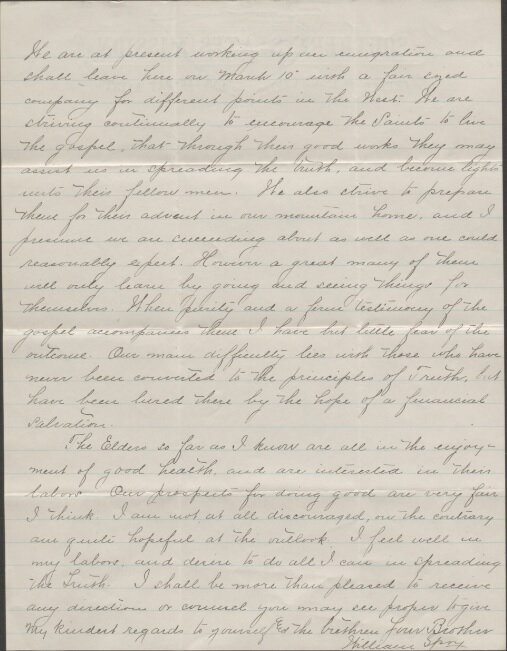 We are at present working up an emigration and
shall leave here on March 10" with a fair sized
company for different points in the West. We are
striving continually to encourage the Saints to live
the gospel, that through their good works they may
assist us in spreading the truth, and become lights
unto their fellow men. We also strive to prepare
them for their advent in our mountain home, and I
presume we are succeeding about as well as one could
reasonably expect. However a great many of them
will only learn by going and seeing things for
themselves. When purity and a firm testimony of the
gospel accompanies them I have but little fear of the
outcome. Our main difficulty lies with those who have
never been converted to the principles of Truth, but
have been lured there by the hope of a financial
salvation.
The Elders so far as I know are all in the enjoy-
ment of good health, and are interested in their
labors. Our prospects for doing good are very fair
I think. I am not at all discouraged, on the contrary
am quite hopeful at the outlook. I feel well in
my labors, and desire to do all I can in spreading
the Truth. I shall be more than pleased to receive
any directions or counsel you may see proper to give
My kindest regards to yourself & the brethren Your Brother
William Spry